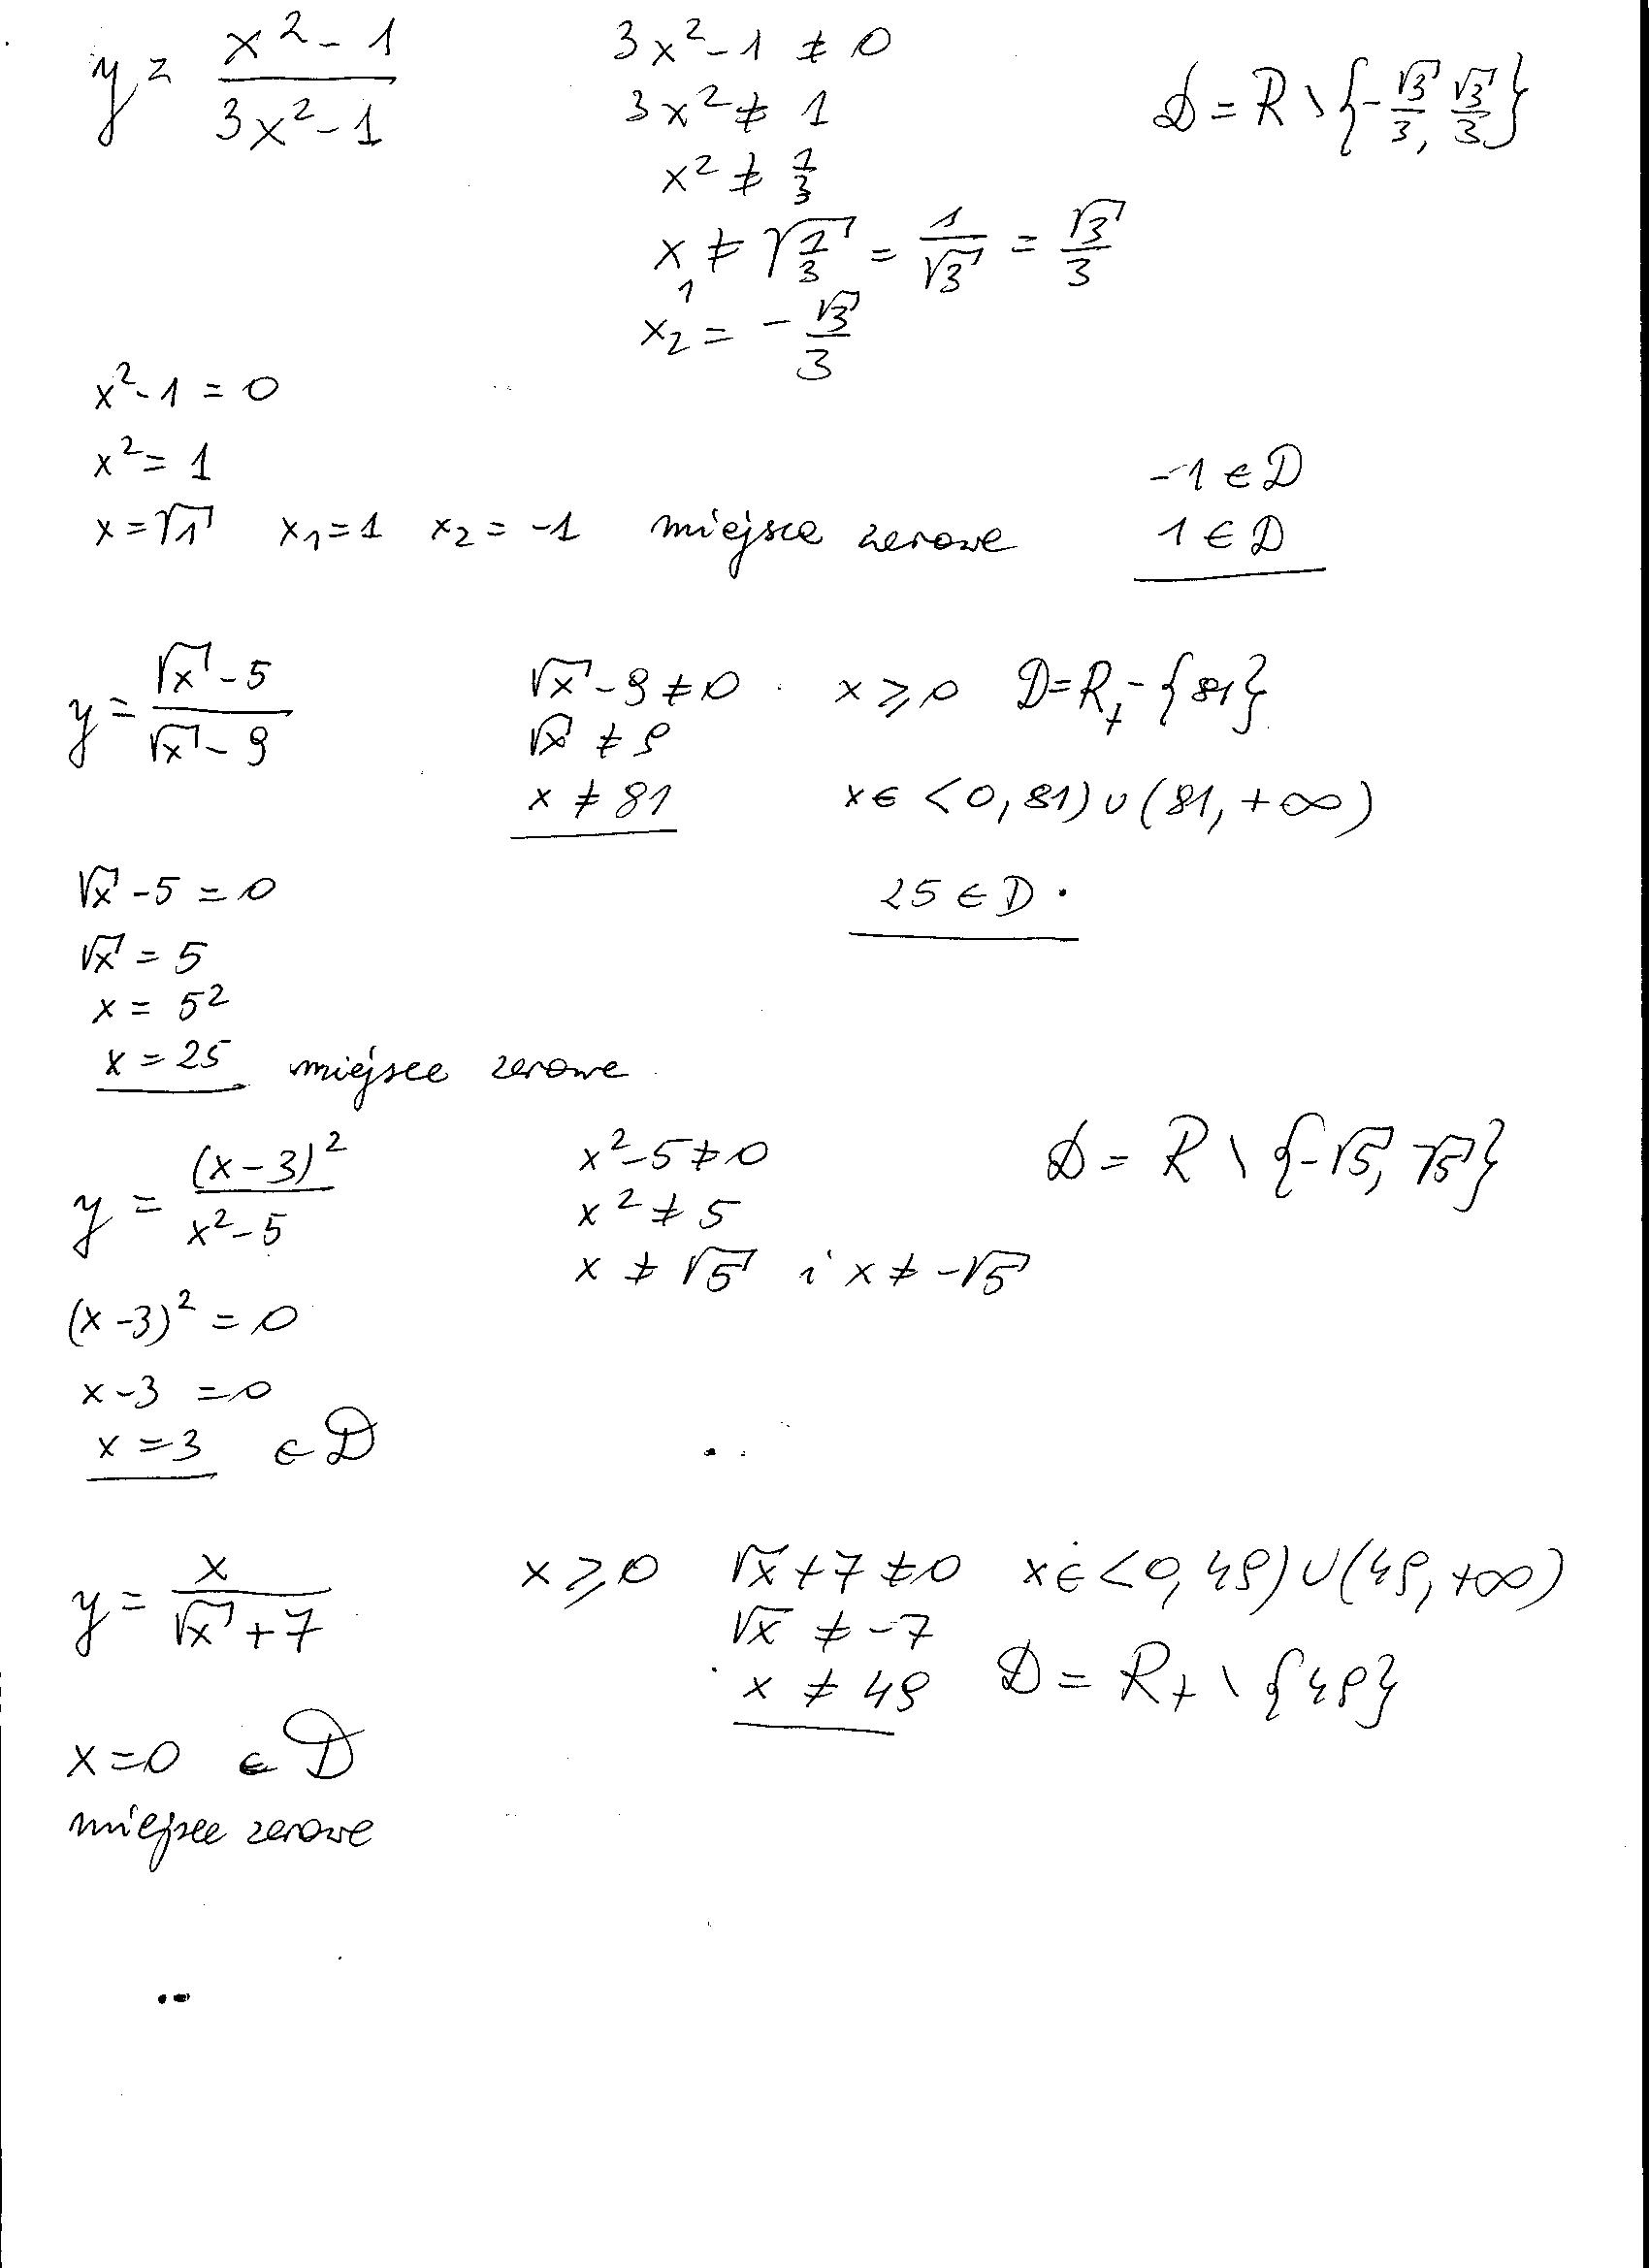 y = (x² - 1)/(3x² - 1)
3x² - 1 ≠ 0
3x² ≠ 1
x² ≠ 1/3
x₁ ≠ √(1/3) = 1/√3 = √3/3
x₂ = - √3/3
D = R \ {-√3/3, √3/3}
x² - 1 = 0
x² = 1
x = √1 x₁ = 1 x₂ = -1 miejsce zerowe
-1 ∈ D
1 ∈ D
y = (√x - 5)/(√x - 9)
√x - 9 ≠ 0 x ≥ 0 D = R₊ - {81}
√x ≠ 9
x ≠ 81 x ∈ <0, 81) ∪ (81, +∞)
√x - 5 = 0
25 ∈ D
√x = 5
x = 5²
x = 25 miejsce zerowe
y = (x-3)²/(x² - 5)
x² - 5 ≠ 0
x² ≠ 5
x ≠ √5 i x ≠ -√5
D = R \ {-√5, √5}
(x - 3)² = 0
x - 3 = 0
x = 3 ∈ D
y = x/(√x + 7)
x ≥ 0 √x + 7 ≠ 0 x ∈ <0, 49) ∪ (49, +∞)
√x ≠ -7
x ≠ 49 D = R₊ \ {49}
x = 0 ∈ D
miejsce zerowe